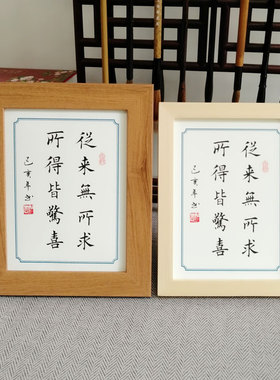 從来無所求
所得皆驚喜
己亥年
從来無所求
所得皆驚喜
己亥年